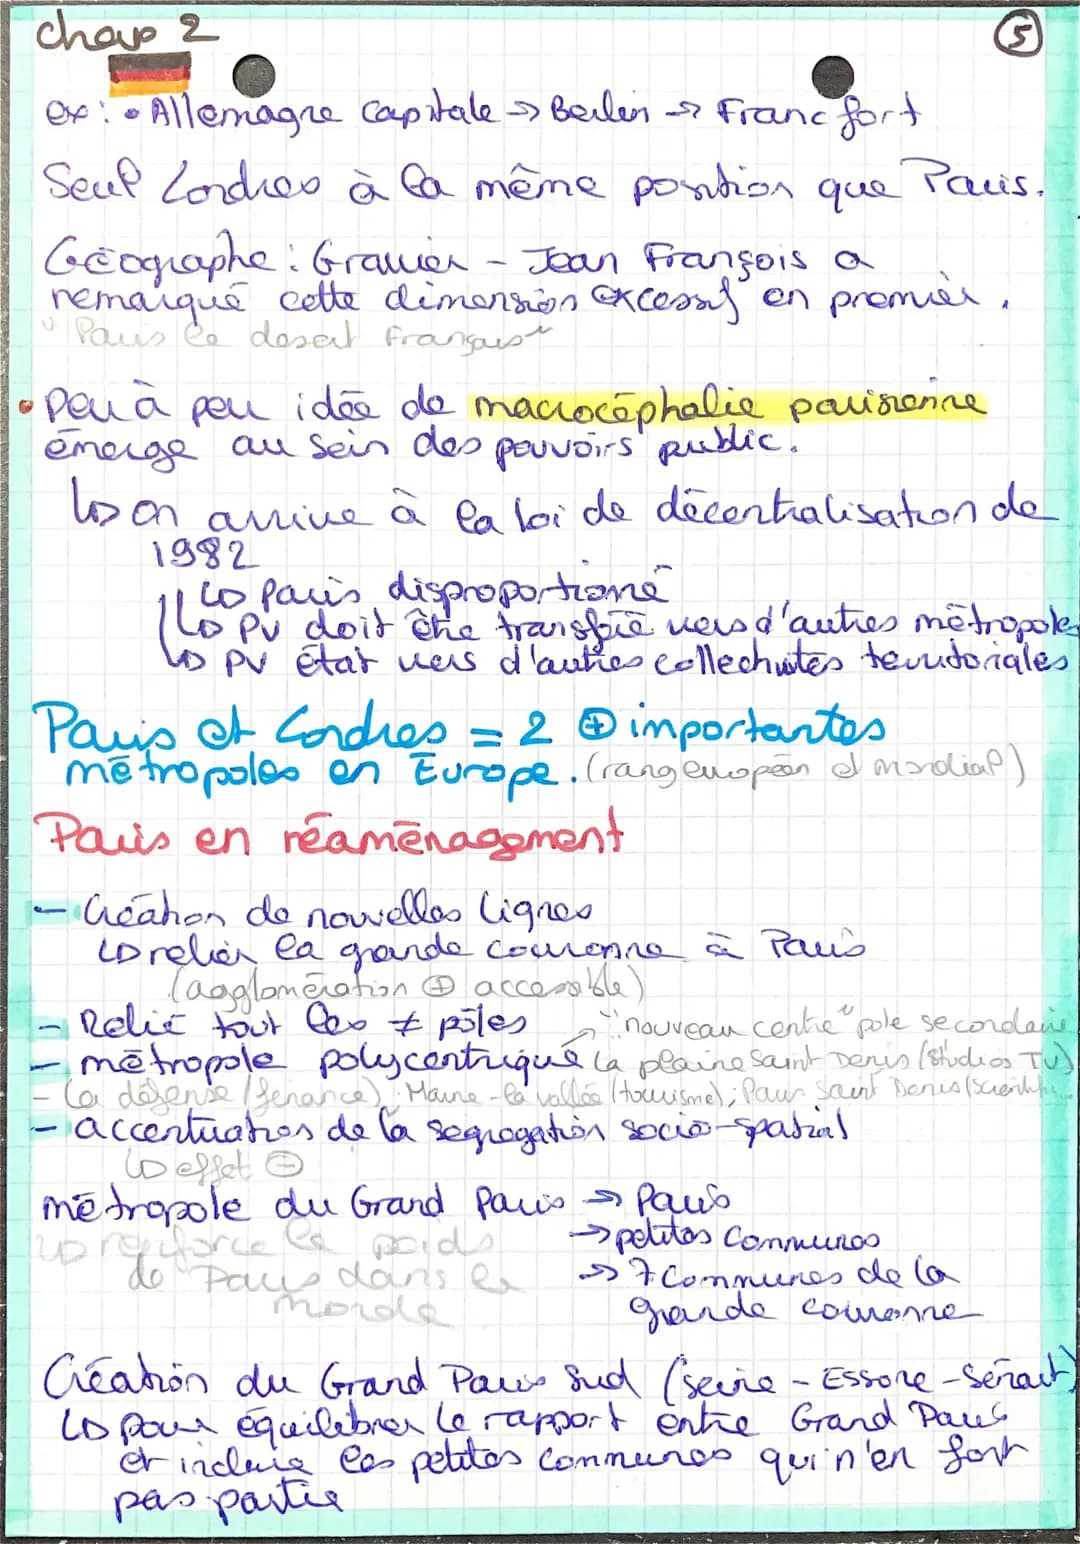 chap 2
5
ex : • Allemagne capitale → Berlin → Francfort
Seul Londres à la même position que Paris.
Géographe : Gravier - Jean François a
remarqué cette dimension excessif en premier.
"Paris le desert Français"
• Peu à peu idée de macrocéphalie parisienne
émerge au sein des pouvoirs public.
↳ on arrive à la loi de décentralisation de
1982
↳ Paris disproportioné
↳ PV doit être transféré vers d'autres métropoles
↳ PV état vers d'autres collectivités territoriales
Paris et Londres = 2 ⊕ importantes
métropoles en Europe. (rang européen et mondial)
Paris en réaménagement
- Création de nouvelles lignes
↳ relier la grande couronne à Paris
(agglomération ⊕ accessible)
- Relié tout les ≠ pôles → "nouveau centre" pole secondaire
- métropole polycentrique la plaine Saint Denis (Studios TV)
- La défense (finance) ; Marne-la vallée (tourisme) ; Saint Denis
- accentuation de la segregation socio-spatial
↳ effet ⊖
métropole du Grand Paris → Paris
→ petites communes
↳ renforce le poids
de Paris dans le
monde
→ 7 communes de la
grande couronne
Création du Grand Paris Sud (seine - Essone - Sénart)
↳ pour équilibrer le rapport entre Grand Paris
et inclure les petites communes qui n'en font
pas partie